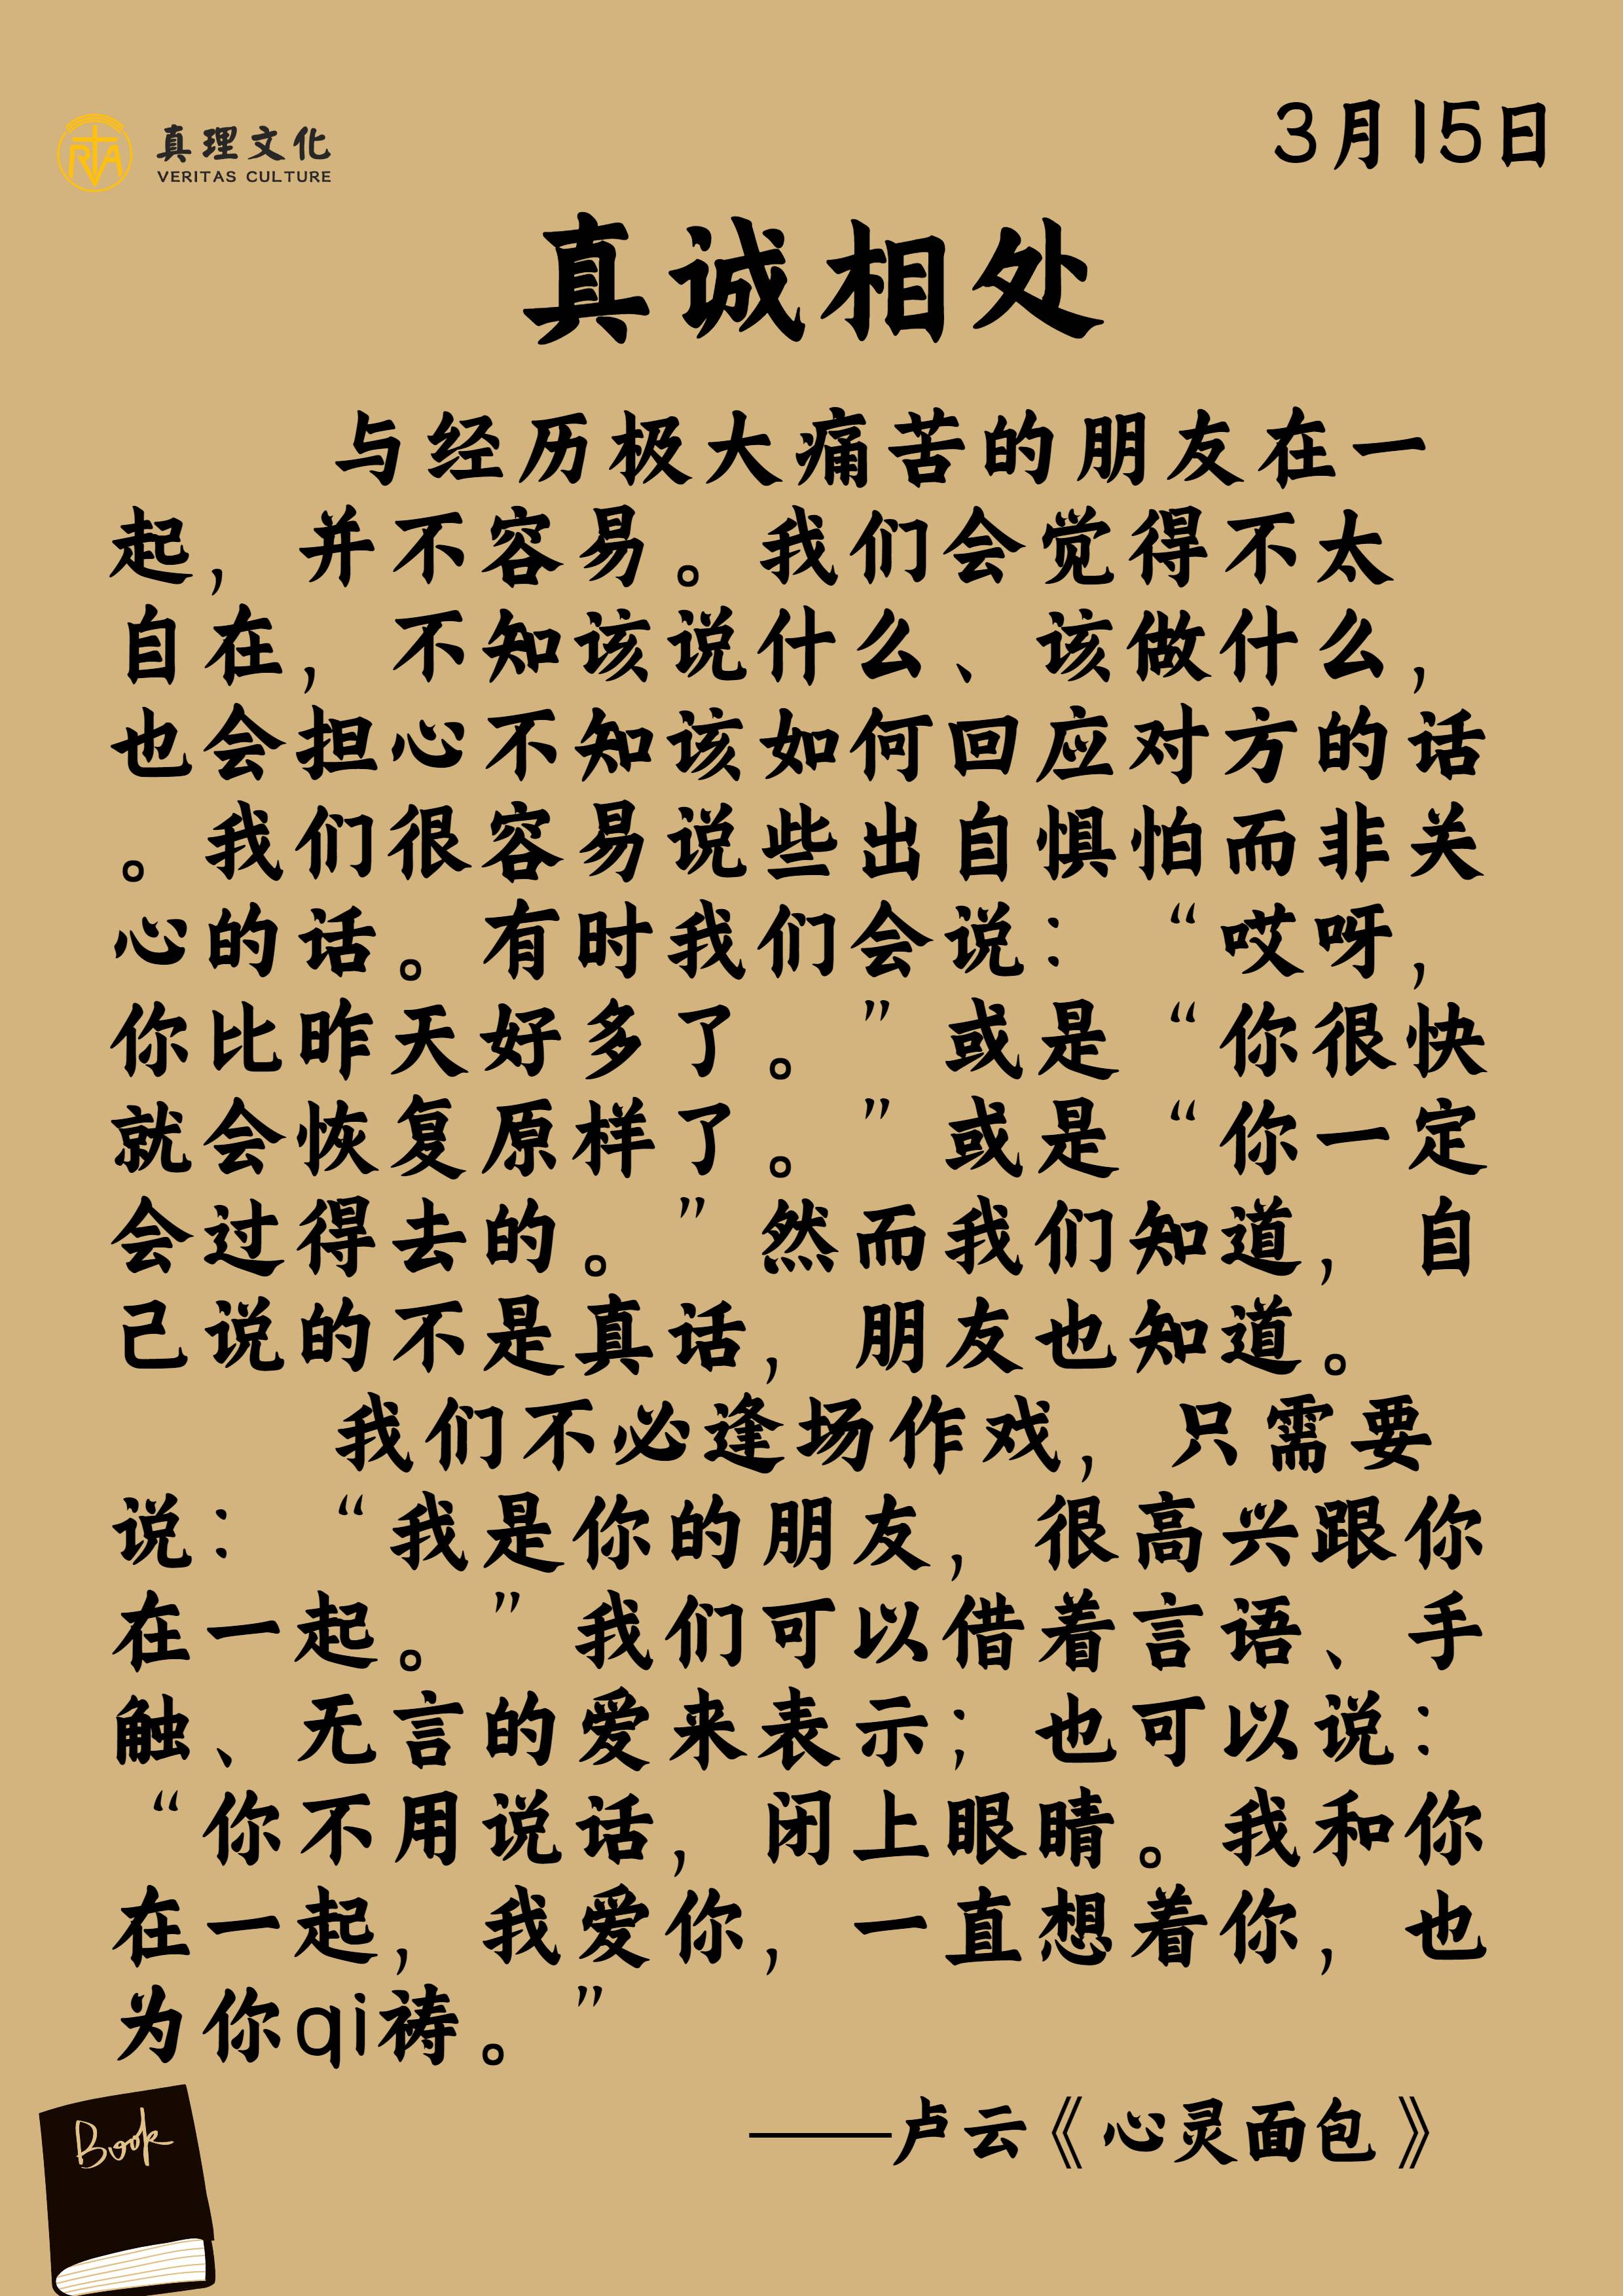 3月15日
真理文化
VERITAS CULTURE
真诚相处
与经历极大痛苦的朋友在一
起，并不容易。我们会觉得不太
自在，不知该说什么、该做什么，
也会担心不知该如何回应对方的话
。我们很容易说些出自惧怕而非关
心的话。有时我们会说：“哎呀，
你比昨天好多了。”或是“你很快
就会恢复原样了。”或是“你一定
会过得去的。”然而我们知道，自
己说的不是真话，朋友也知道。
我们不必逢场作戏，只需要
说：“我是你的朋友，很高兴跟你
在一起。”我们可以借着言语、手
触、无言的爱来表示；也可以说：
“你不用说话，闭上眼睛。我和你
在一起，我爱你，一直想着你，也
为你qi祷。”
——卢云《心灵面包》
Book